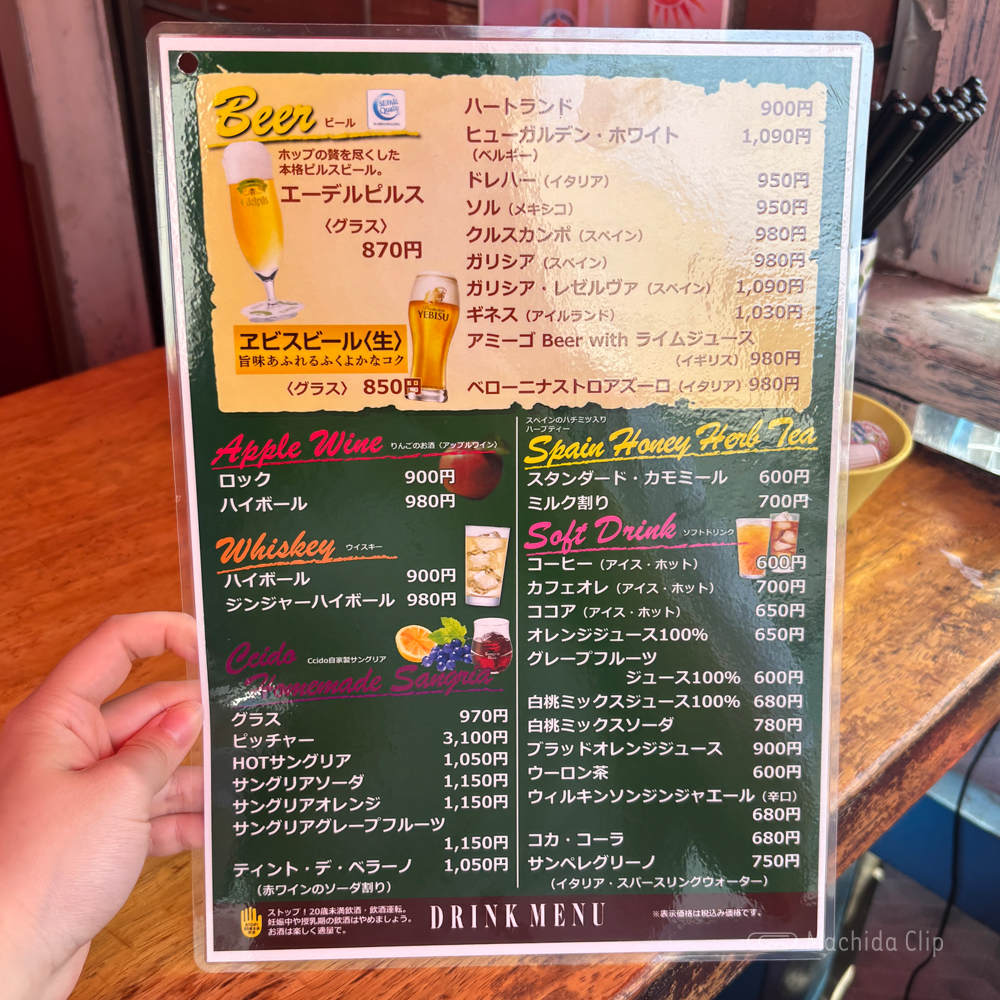 Beer ビール
ホップの贅を尽くした
本格ピルスビール。
エーデルピルス
〈グラス〉
870円
YEBISU
ヱビスビール〈生〉
旨味あふれるふくよかなコク
〈グラス〉 850円
ハートランド 900円
ヒューガルデン・ホワイト 1,090円
（ベルギー）
ドレハー（イタリア） 950円
ソル（メキシコ） 950円
クルスカンポ（スペイン） 980円
ガリシア（スペイン） 980円
ガリシア・レゼルヴァ（スペイン） 1,090円
ギネス（アイルランド） 1,030円
アミーゴ Beer with ライムジュース
（イギリス） 980円
ベローニナストロアズーロ（イタリア） 980円
Apple Wine りんごのお酒〈アップルワイン〉
ロック 900円
ハイボール 980円
Whiskey ウイスキー
ハイボール 900円
ジンジャーハイボール 980円
Ccido Ccido自家製サングリア
Homemade Sangria
グラス 970円
ピッチャー 3,100円
HOTサングリア 1,050円
サングリアソーダ 1,150円
サングリアオレンジ 1,150円
サングリアグレープフルーツ
1,150円
ティント・デ・ベラーノ 1,050円
（赤ワインのソーダ割り）
スペインのハチミツ入り
ハーブティー
Spain Honey Herb Tea
スタンダード・カモミール 600円
ミルク割り 700円
Soft Drink ソフトドリンク
コーヒー（アイス・ホット） 600円
カフェオレ（アイス・ホット） 700円
ココア（アイス・ホット） 650円
オレンジジュース100% 650円
グレープフルーツ
ジュース100% 600円
白桃ミックスジュース100% 680円
白桃ミックスソーダ 780円
ブラッドオレンジジュース 900円
ウーロン茶 600円
ウィルキンソンジンジャエール（辛口）
680円
コカ・コーラ 680円
サンペレグリーノ 750円
（イタリア・スパースリングウォーター）
ストップ！20歳未満飲酒・飲酒運転。
妊娠中や授乳期の飲酒はやめましょう。
お酒は楽しく適量で。
DRINK MENU
※表示価格は税込み価格です。
Machida Clip